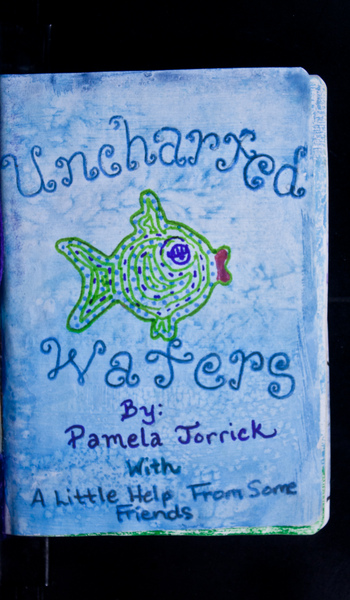 Uncharted
Waters
By:
Pamela Torrick
With
A Little Help From Some
Friends